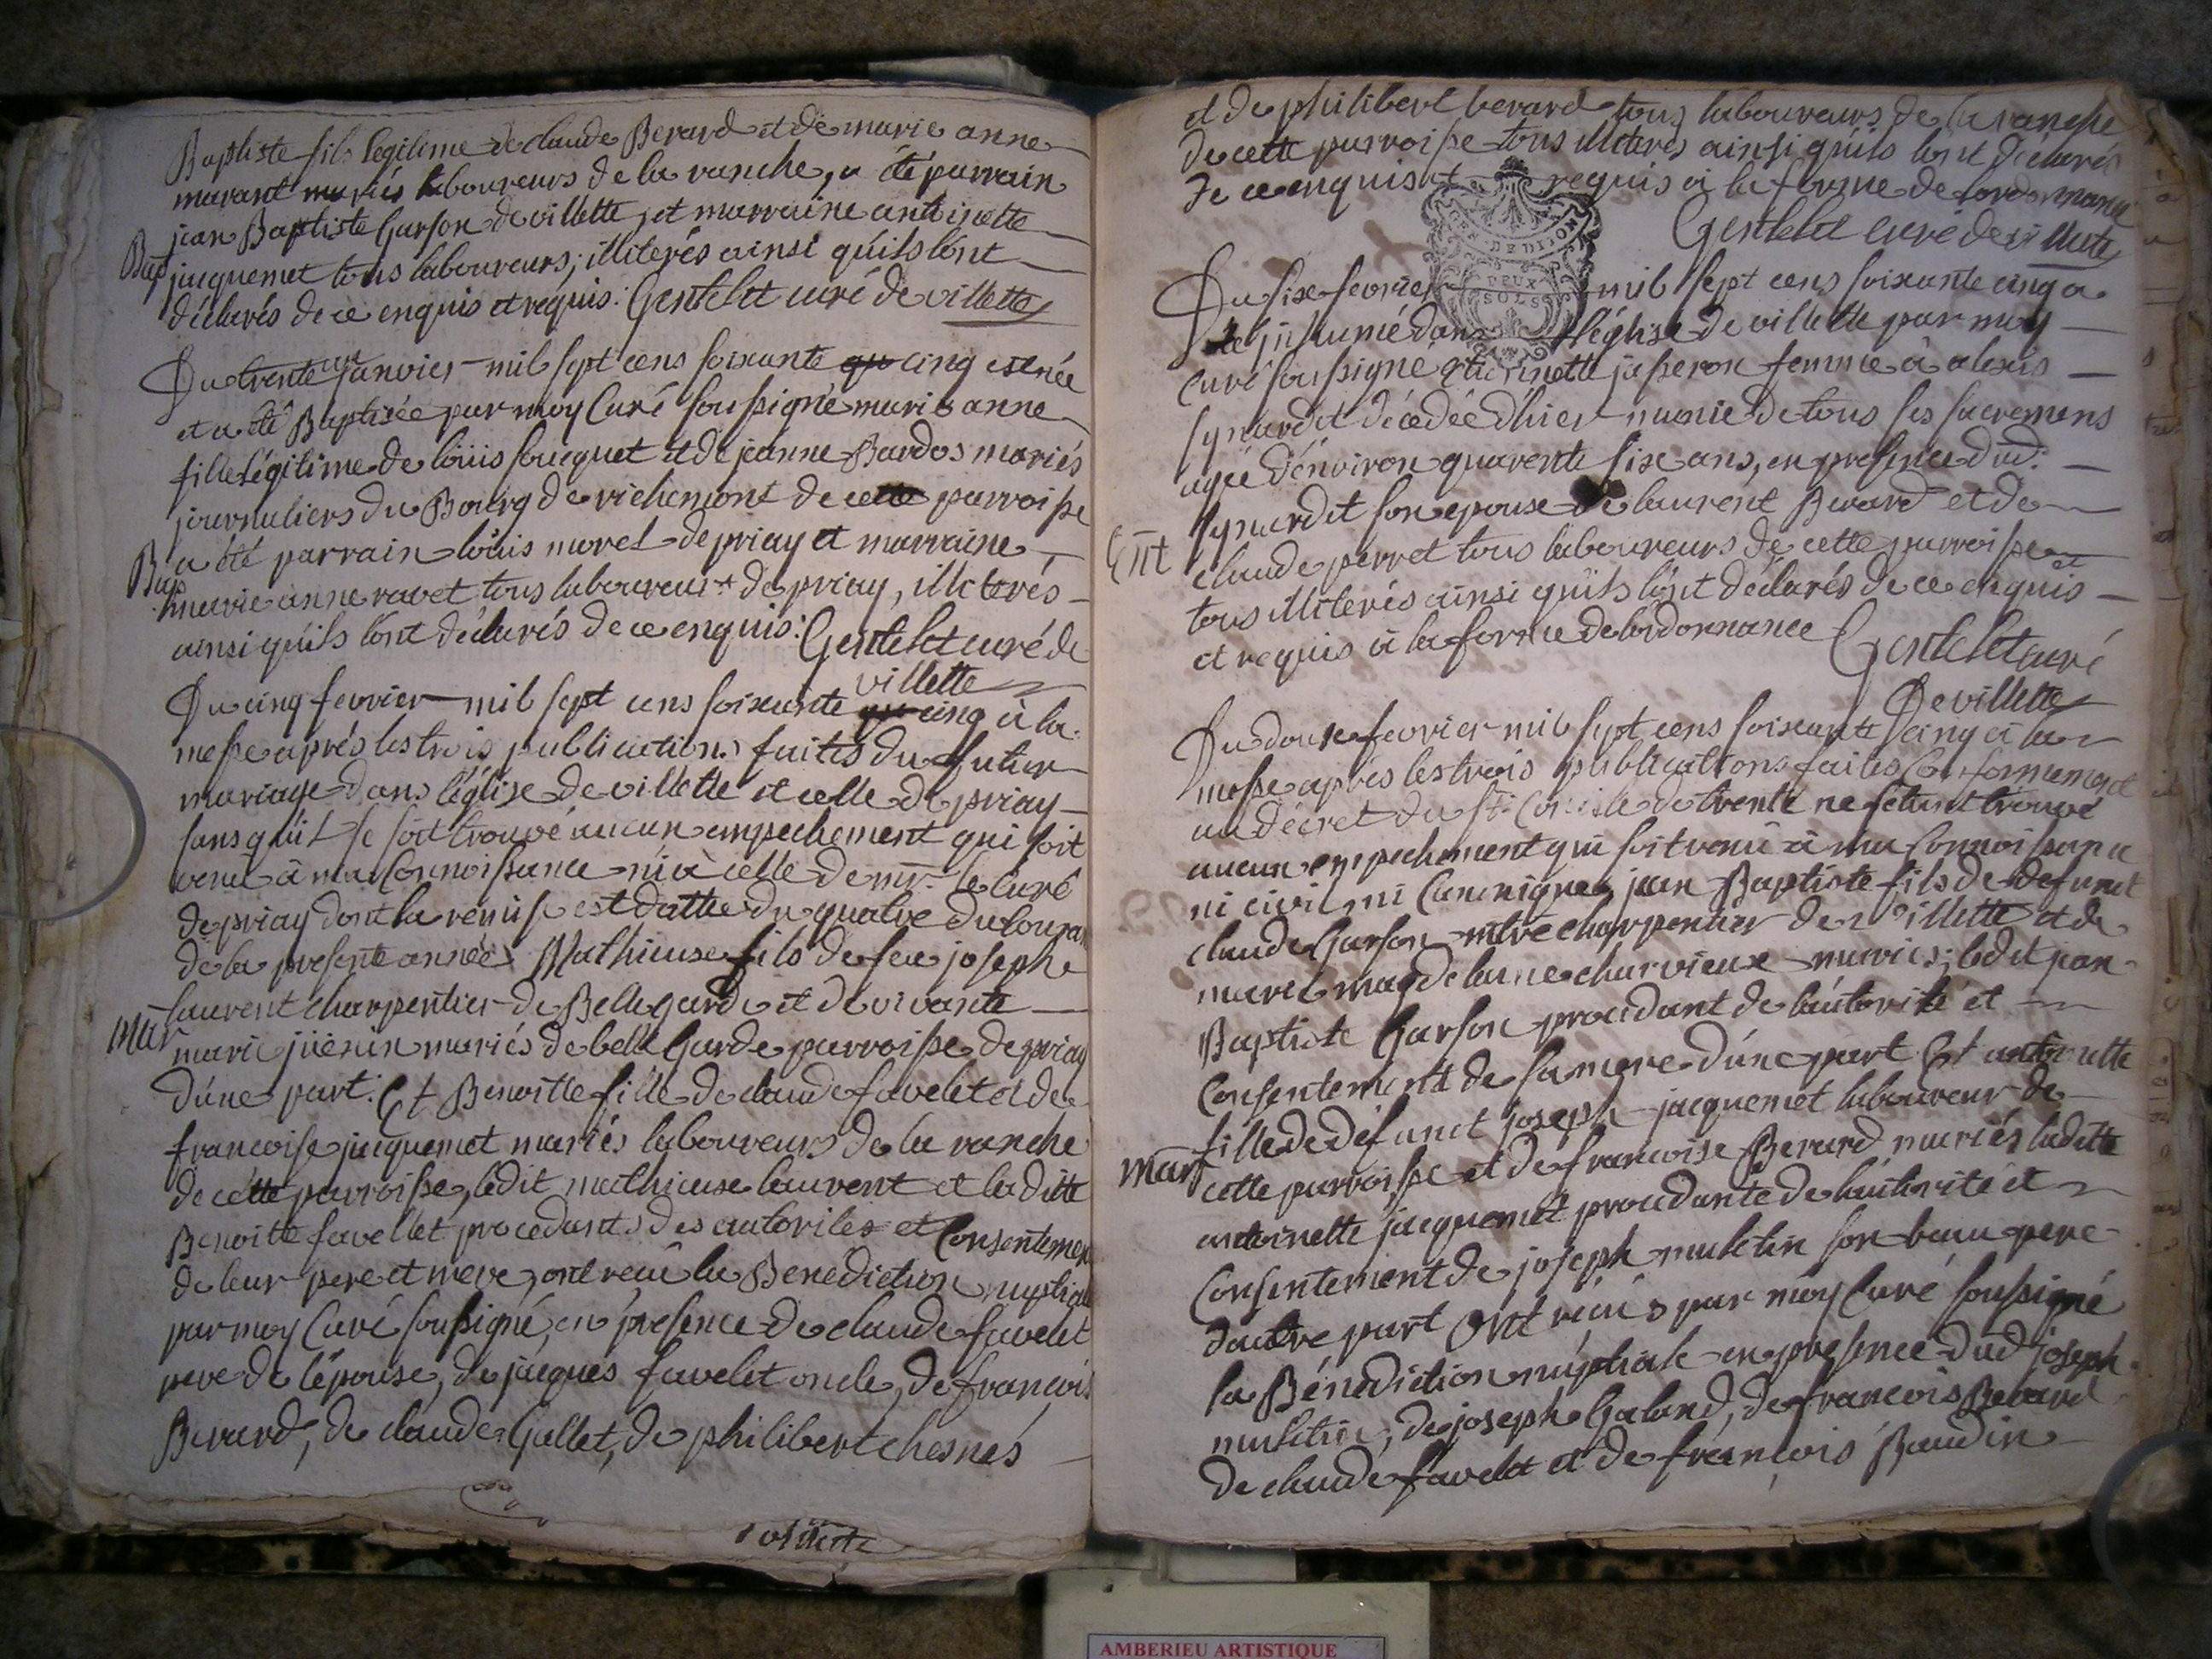 Baptiste fils légitime de claude Berard et de marie anne
marant mariés laboureurs de la ranche, a été parrain
jean Baptiste Garson de villette, et marraine antoinette
Bap jacquemet tous laboureurs; illiterés ainsi qu'ils l'ont
déclarés de ce enquis et requis. Gentelet curé de villette
Du trente un janvier mil sept cens soixante cinq est née
et a été Baptisée par moy Curé soussigné marie anne
fille légitime de loüis foucquet et de jeanne Bardos mariés
journaliers du Bourg de richemont de cette parroisse
a été parrain loüis morel de priay et marraine
Bap marie anne ravet tous laboureurs de priay, illiterés
ainsi qu'ils l'ont déclarés de ce enquis. Gentelet curé de
villette
Du cinq fevrier mil sept cens soixante cinq à la
messe après les trois publications faites du futur
mariage dans l'église de villette et celle de priay
sans qu'il se soit trouvé aucun empechement qui soit
venu à ma Connoissance ni à celle de mr. le Curé
de priay dont la remise est dattée du quatre du couran
de la presente année Mathieuse fils de feu joseph
laurent charpentier de Bellegarde et de vivante
Mar marie jüenin mariés de belle Garde parroisse de priay
d'une part. Et Benoitte fille de claude favelet et de
francoise jacquemet mariés laboureurs de la ranche
de cette parroisse, ledit mathieuse laurent et laditte
Benoitte favellet procedants des autorites et Consentemen
de leur pere et mere, ont reçu la Benediction nuptiale
par moy Curé soussigné, en presence de claude favelet
pere de l'épouse, de jacques favelet oncle, de francois
Berard, de claude Gallet, de philibert chesnés
villette
et de philibert berard tous laboureurs de la ranche
de cette parroisse tous illiterés ainsi qu'ils l'ont déclarés
de ce enquis et requis à la forme de l'ordonnance
Gentelet curé de villette
GEN. DE DIJON
DEUX
SOLS
Du six fevrier mil sept cens soixante cinq a
été inhumée dans l'église de villette par moy
Curé soussigné antoinette jasseron femme à alexis
synardet décédée d'hier munie de tous ses sacremens
agée d'environ quarente six ans, en presence dud.
synardet son epouse de laurent Berard et de
Ent claude perret tous laboureurs de cette parroisse
tous illiterés ainsi qu'ils l'ont déclarés de ce enquis et
et requis à la forme de l'ordonnance Gentelet curé
De villette
Du douse fevrier mil sept cens soixante cinq à la
messe après les trois publications faites Conformement
au décret du st. Concile de trente ne s'étant trouvé
aucun empechement qui soit venu à ma Connoissance
ni civil ni Canonique, jean Baptiste fils de defunct
claude Garson mtre charpentier de villette et de
marie magdelaine charvieux mariés; ledit jean
Baptiste Garson procedant de l'autorité et
Consentement de sa mere d'une part Et antoinette
fille de défunct joseph jacquemet laboureur de
Mar cette parroisse et de francoise Berard mariés laditte
antoinette jacquemet procedante de l'autorité et
Consentement de joseph muletin son beau pere
d'autre part Ont reçus par moy Curé soussigné
la Bénédiction nuptiale en presence dud. joseph
muletin, de joseph Galand, de francois Berard
de claude favelet et de françois Baudin
AMBERIEU ARTISTIQUE